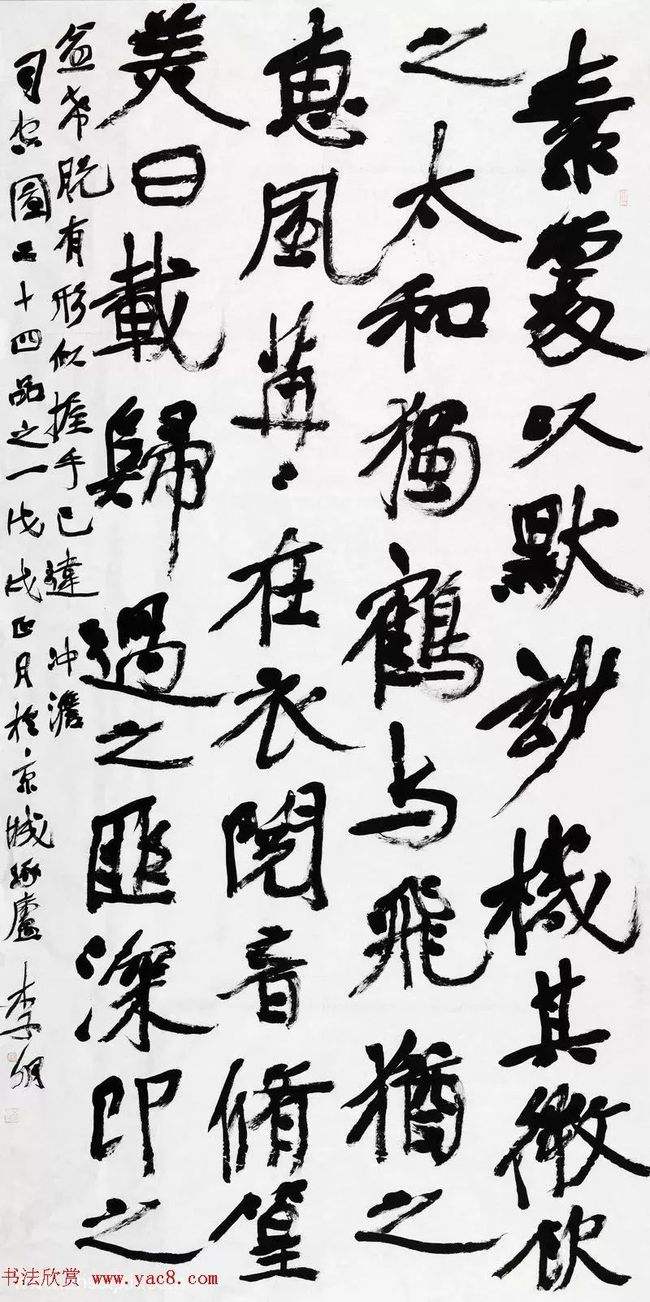 素處以默妙機其微飲
之太和獨鶴与飛猶之
惠風苒〻在衣閱音脩篁
美曰載歸過之匪深即之
愈希脱有形似握手已違 冲澹
司空圖二十四品之一戊戌正月於京城琢廬 李
书法欣赏 www.yac8.com